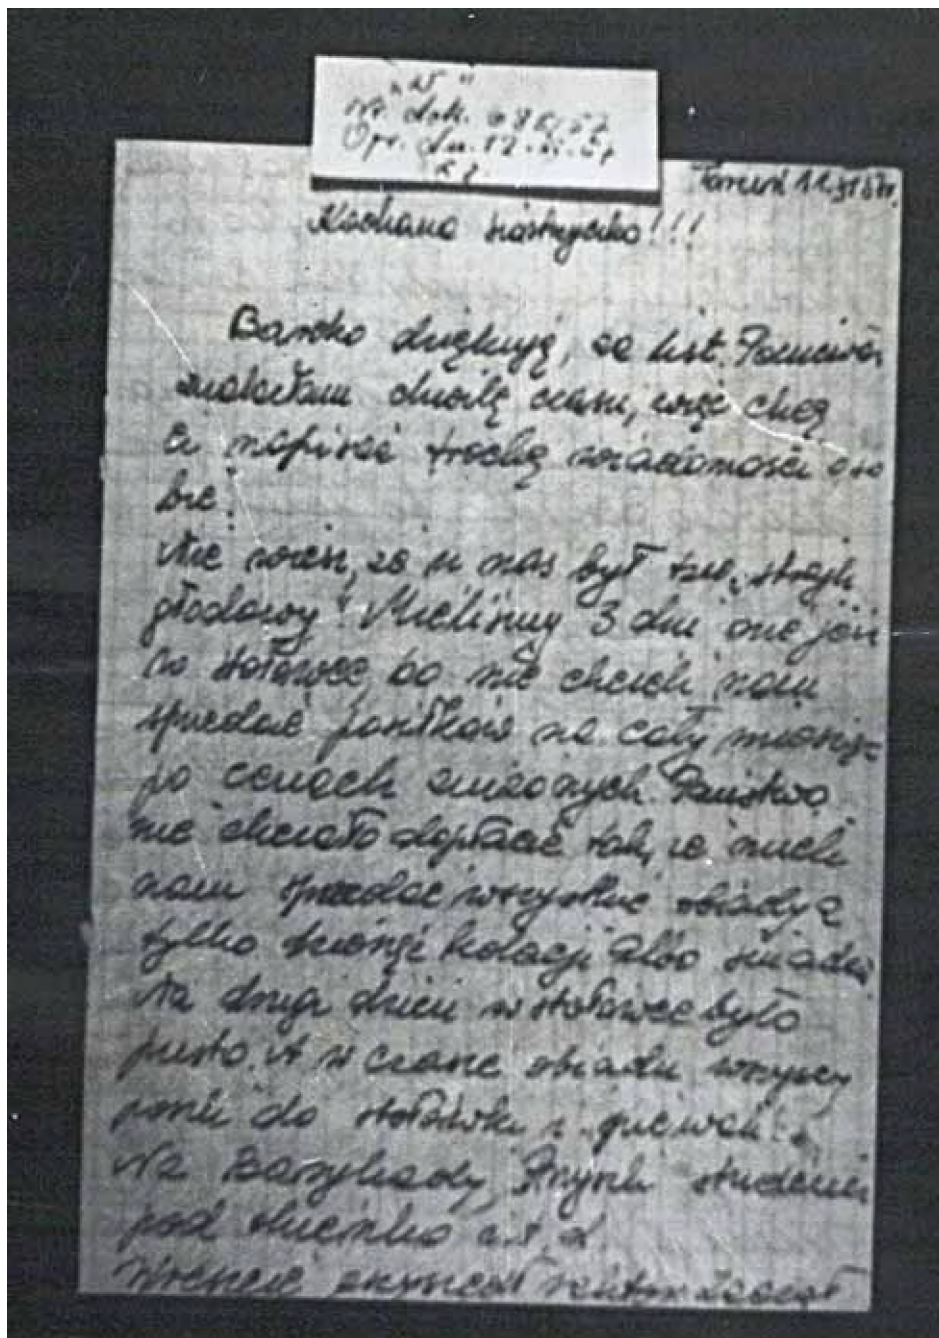 „W"
Nr dok.
Opr. dn. 12.
Toruń 11.
Kochana siostrzyczko!!!
Bardzo dziękuję, za list. Ponieważ
znalazłam chwilę czasu, więc chcę
Ci napisać trochę wiadomości o so
bie.
Nie wiesz, że u nas był tzw. „strajk
głodowy". Mieliśmy 3 dni nie jeść
w stołówce, bo nie chcieli nam
sprzedać posiłków na cały miesiąc
po cenach zniżonych. Państwo
nie chciało dopłacać tak, że mieli
nam sprzedać wszystkie obiady a
tylko dziesięć kolacji albo śniadań
Na drugi dzień w stołówce było
pusto. A w czasie obiadu wszyscy
poszli do stołówki i śpiewali:
Na Barykady, studenci
pod
Wreszcie rektor zaczął